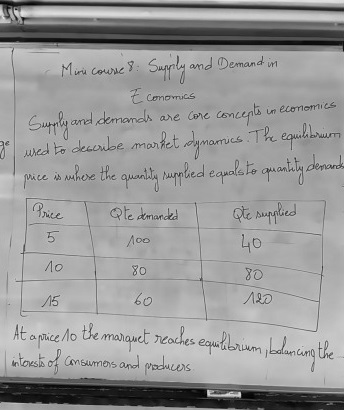 Mini course 8: Supply and Demand in
Economics
Supply and demands are core concepts in economics
used to describe market dynamics. The equilibrium
price is where the quantity supplied equals to quantity demand
Price Qte demanded Qte supplied
5 100 40
10 80 80
15 60 120
At a price 10 the marquet reaches equilibrium, balancing the
interests of consumers and producers